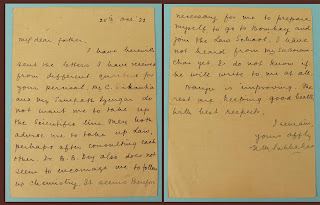 20th Oct 23
My dear father,
I have herewith
sent the letters I have received
from different quarters for
your perusal. Mr. C.
and Mr. Tirupath Iyengar do
not want me to take up
the Scientific line. They both
advise me to take up Law,
perhaps after consulting each
other. Dr. B. B. Dey also does not
seem to encourage me to follow
up chemistry. It seems therefore
necessary for me to prepare
myself to go to Bombay and
join the Law School. I have
not heard from Mr.
yet. I do not know if
he will write to me at all.
is improving. The
rest are keeping good health
with best respects.
I remain,
yours affly